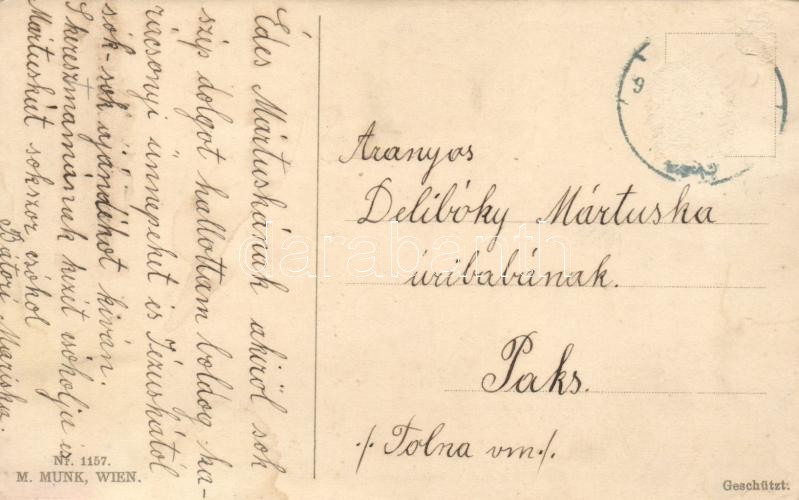 Édes Mártuskának akiről sok
szép dolgot hallottam boldog ka-
rácsonyi ünnepeket és Jézuskától
sok-sok ajándékot kíván.
S keresztmamának kezét csókolja és
Mártuskát sokszor csókol
Bátori Mariska.
Aranyos
Delibóky Mártuska
úribabának.
Paks.
./. Tolna vm./.
Nr. 1157.
M. MUNK, WIEN.
Geschützt.
darabanth
9